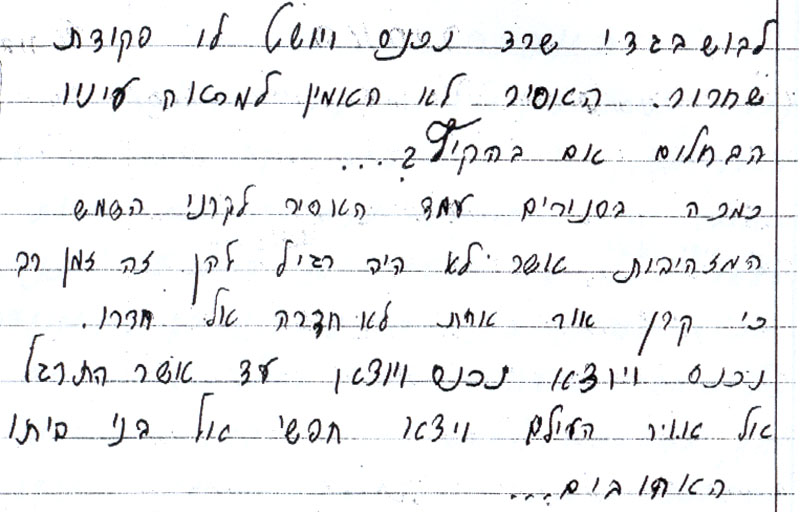 לבוש בבגדי שרד נכנס ויושיט לו פקודת
שחרור. האסיר לא האמין למראה עיניו
הבחלום אום בהקיץ?....
כמכה בסנורים עמד האסיר לקרני השמש
המזהיבות אשר לא היה רגיל להן זה זמן רב
כי קרן אור אחת לא חדרה אל חדרו.
נכנס ויוצא נכנס ויוצא עד אשר התרגל
אל אויר העולם ויצא חפשי אל בני ביתו
האהובים...